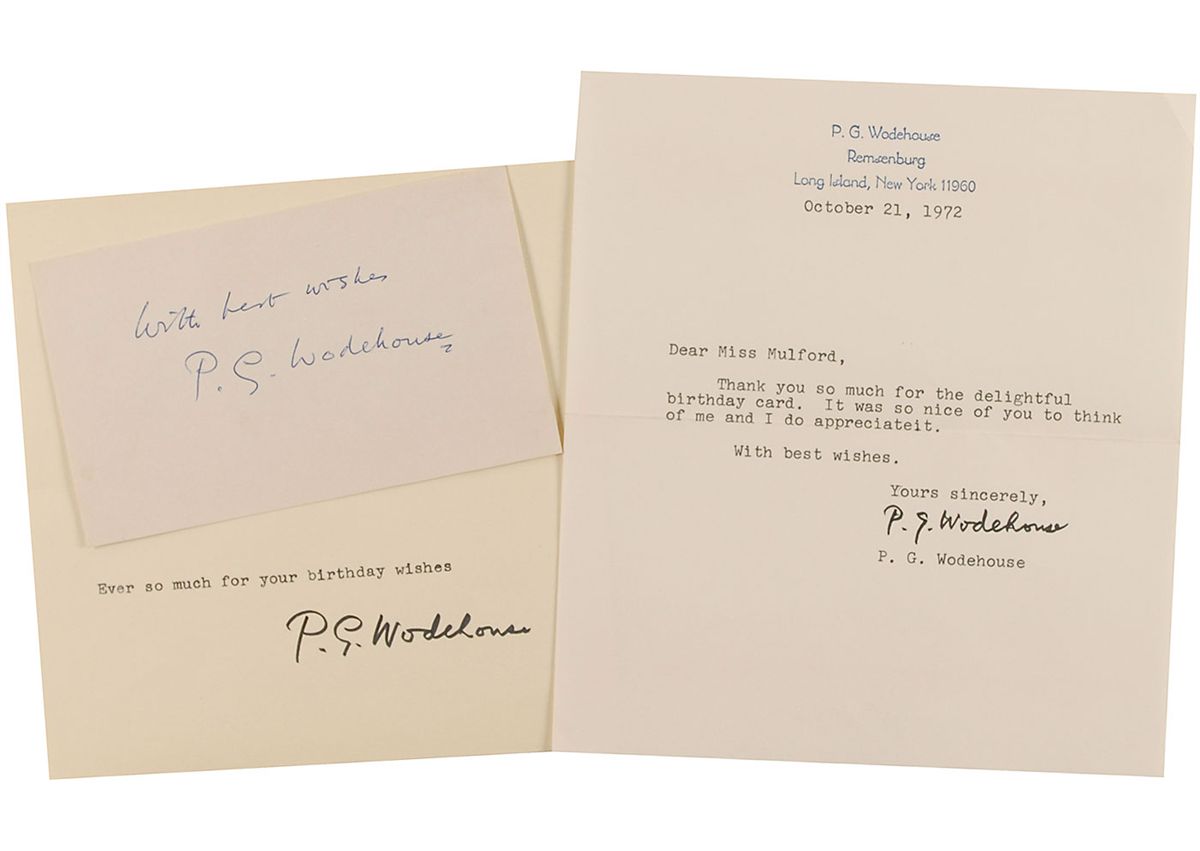 With best wishes
P. G. Wodehouse
Ever so much for your birthday wishes
P. G. Wodehouse
P. G. Wodehouse
Remsenburg
Long Island, New York 11960
October 21, 1972
Dear Miss Mulford,
Thank you so much for the delightful
birthday card. It was so nice of you to think
of me and I do appreciateit.
With best wishes.
Yours sincerely,
P. G. Wodehouse
P. G. Wodehouse